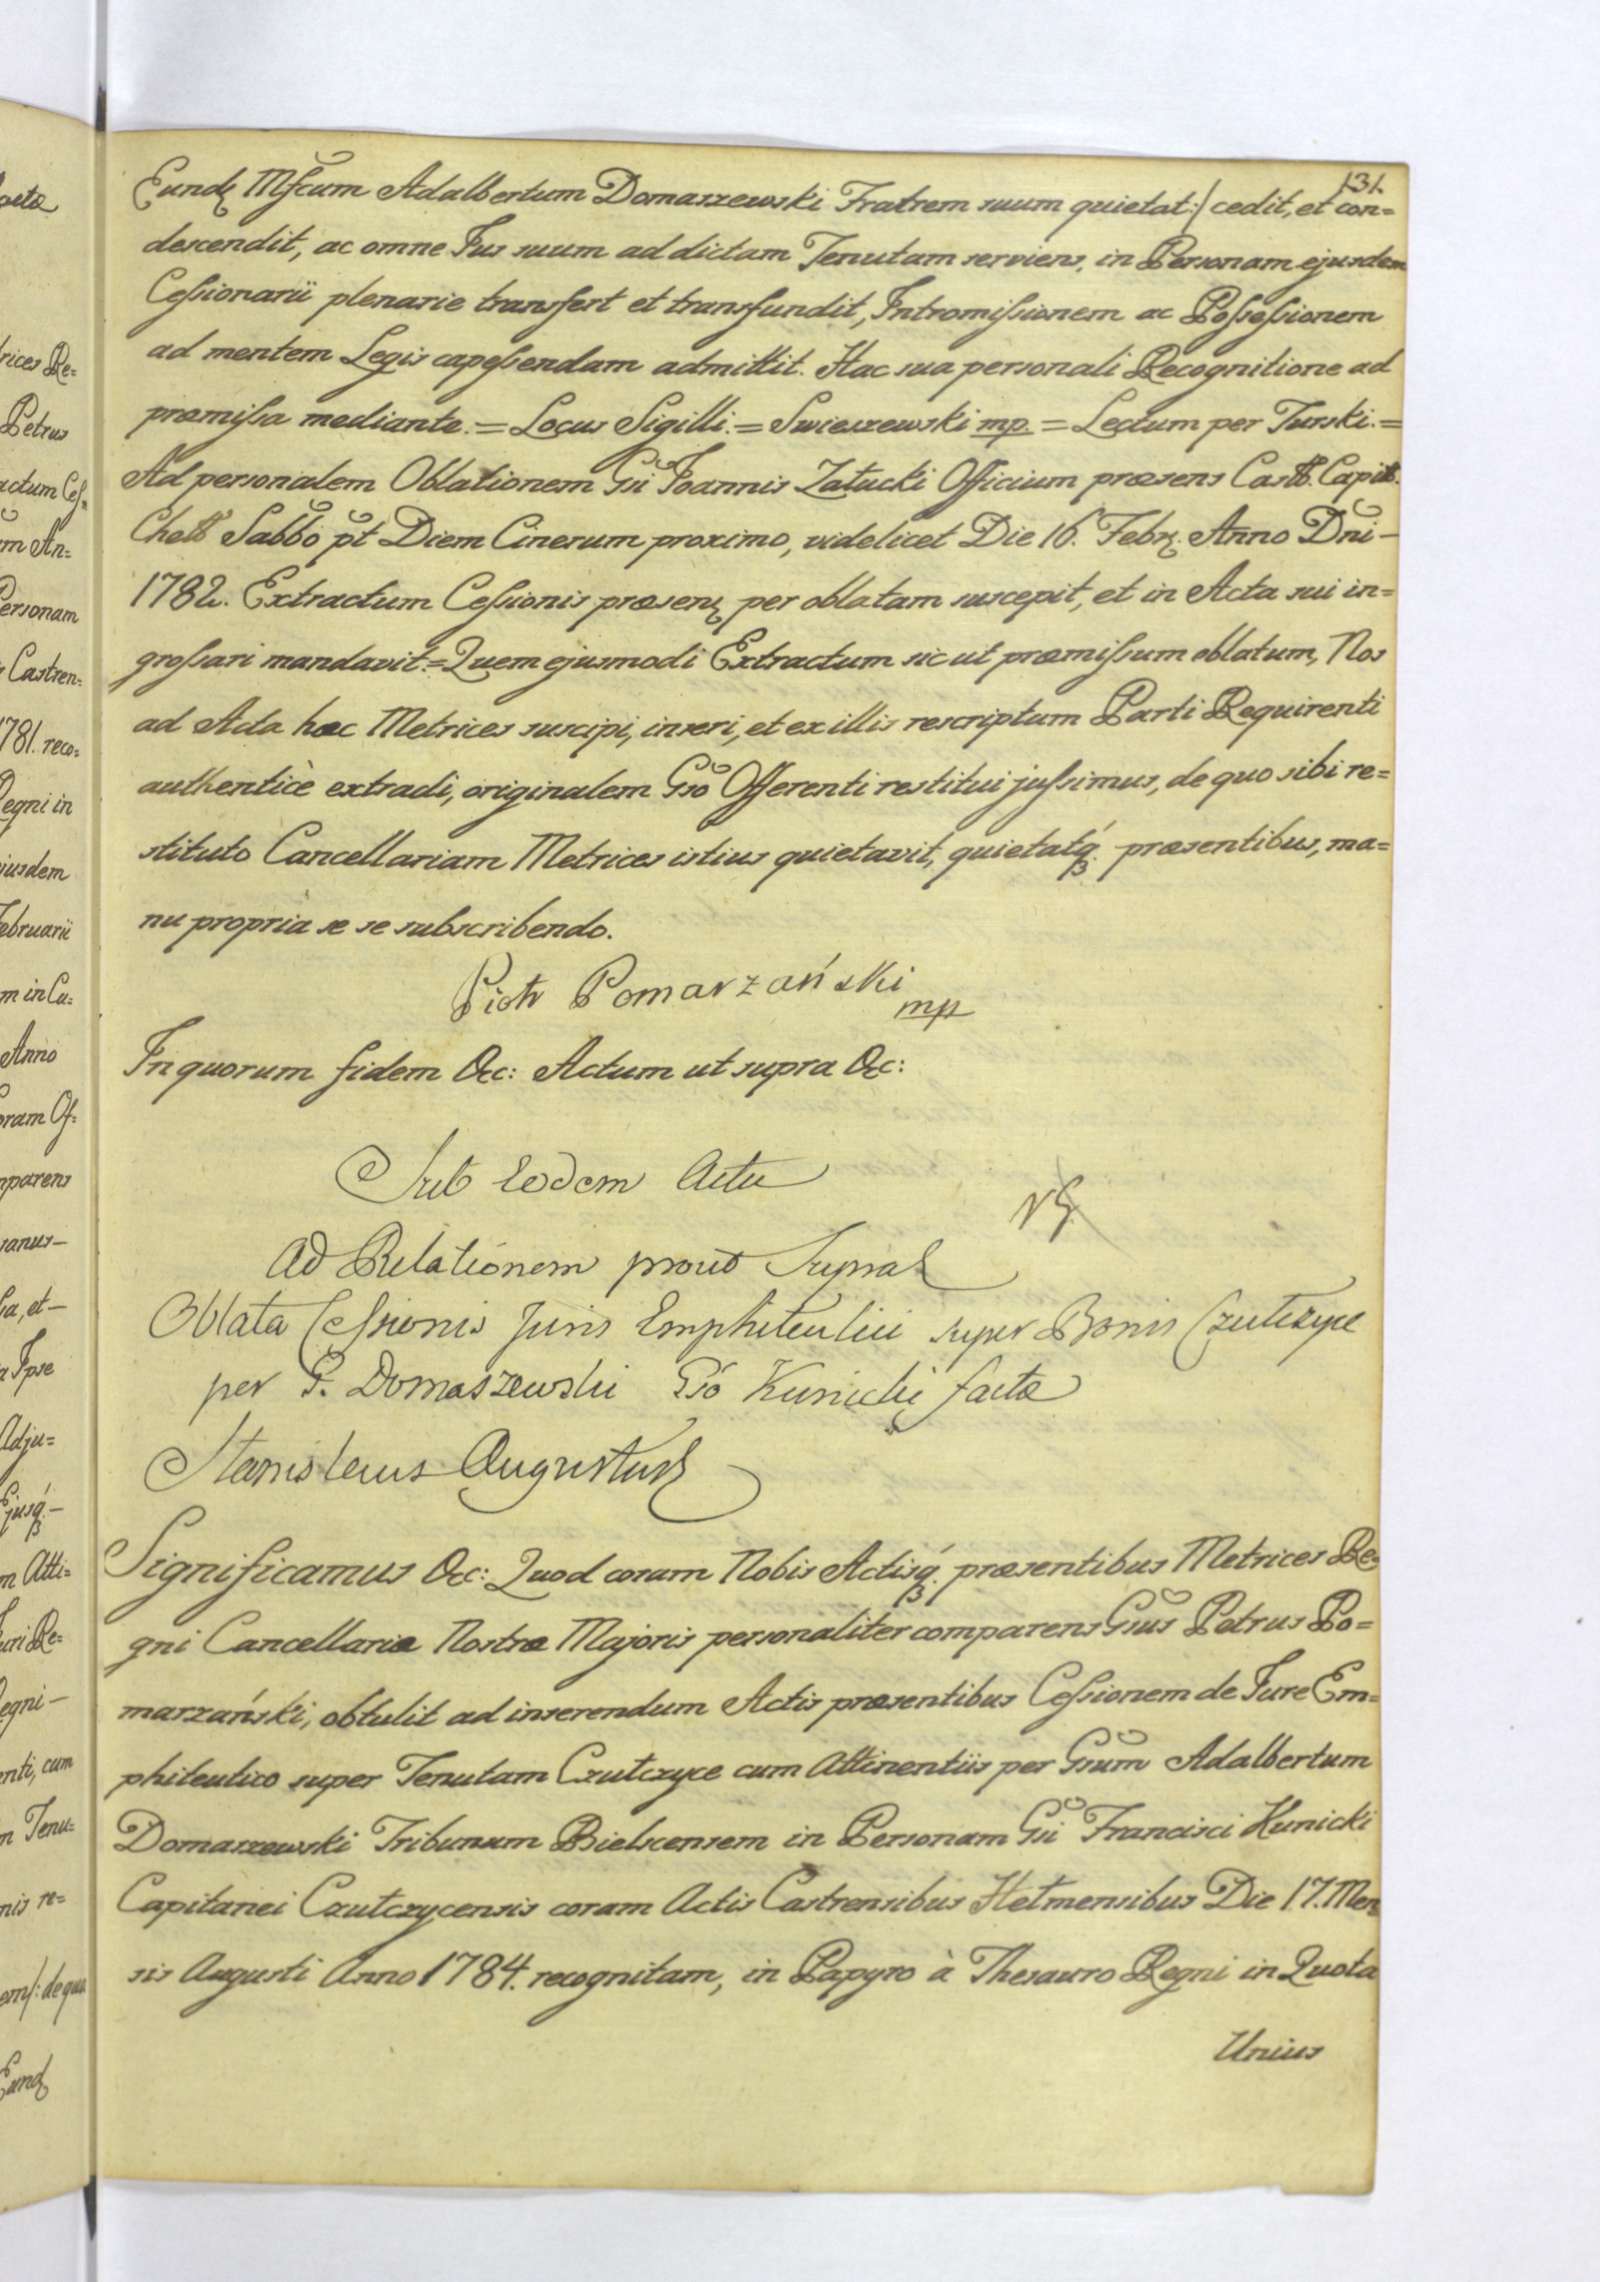 131.
Eundę Mfcum Adalbertum Domaszewski Fratrem suum quietat:/ cedit, et con=
descendit, ac omne Jus suum ad dictam Tenutam serviens, in Personam ejusdem
Cessionarii plenarie transfert et transfundit, Intromissionem ac Possessionem
ad mentem Legis capessendam admittit. Hac sua personali Recognitione ad
præmissa mediante. = Locus Sigilli. = Swieszewski mp. = Lectum per Turski. =
Ad personalem Oblationem Gsi Joannis Zatucki Officium præsens Castr. Capit.
Chełł Sabbo pt Diem Cinerum proximo, videlicet Die 16. Febrę. Anno Dni –
1782. Extractum Cessionis præsenę per oblatam suscepit, et in Acta sui in=
grossari mandavit. = Quem ejusmodi Extractum sic ut præmissum oblatum, Nos
ad Acta hæc Metrices suscipi, inseri, et ex illis rescriptum Parti Requirenti
authenticè extradi, originalem Gso Offerenti restitui jussimus, de quo sibi re=
stituto Cancellariam Metrices istius quietavit, quietatq́. præsentibus, ma=
nu propria se se subscribendo.
Piotr Pomarzański
mp
In quorum fidem &c: Actum ut supra &c:
Sub Eodem Actu
Ad Relationem prout Supra
Oblata Cessionis Juris Emphiteutici super Bonis Czutczyce
per G. Domaszewski Gso Kunicki factæ
Stanislaus Augustus
Significamus &c: Quod coram Nobis Actisq́. præsentibus Metrices Re=
gni Cancellariæ Nostræ Majoris personaliter comparens Gsus Petrus Po=
marzański, obtulit ad inserendum Actis præsentibus Cessionem de Jure Em=
phiteutico super Tenutam Czutczyce cum Attinentiis per Gsum Adalbertum
Domaszewski Tribunum Bielscensem in Personam Gsi Francisci Kunicki
Capitanei Czutczycensis coram Actis Castrensibus Hetmensibus Die 17. Men
sis Augusti Anno 1784. recognitam, in Papyro à Thesauro Regni in Quota
Unius